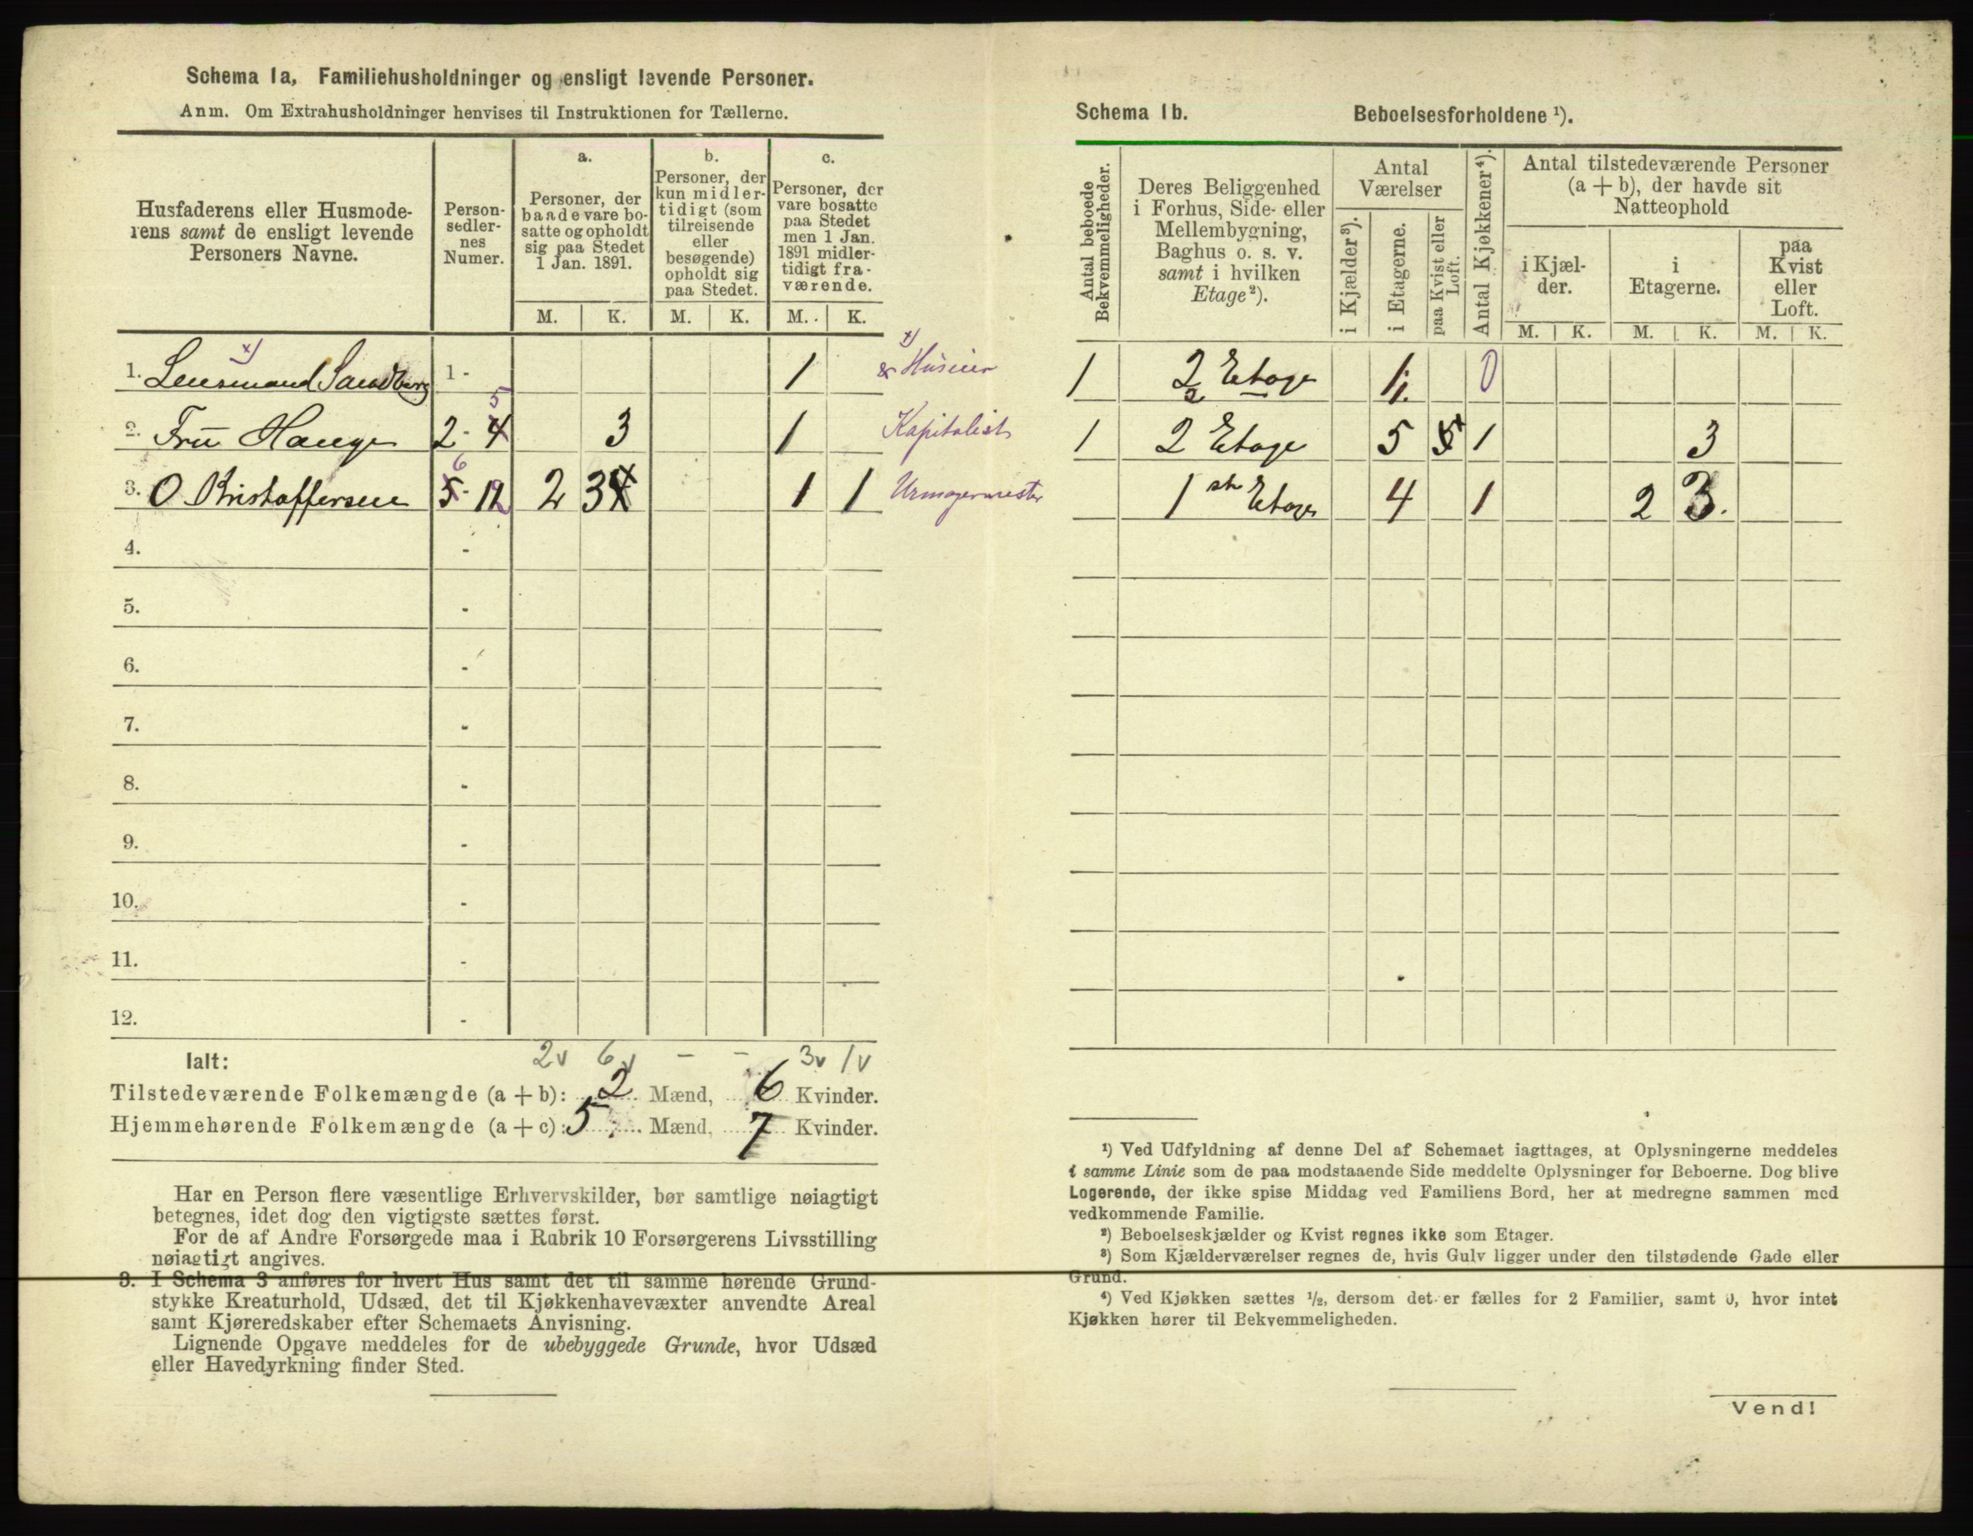 Schema 1a, Familiehusholdninger og ensligt levende Personer.
Anm. Om Extrahusholdninger henvises til Instruktionen for Tællerne.
Husfaderens eller Husmode-
rens samt de ensligt levende
Personers Navne.
Person-
sedler-
nes
Numer.
a.
Personer, der
baade vare bo-
satte og opholdt
sig paa Stedet
1 Jan. 1891.
b.
Personer, der
kun midler-
tidigt (som
tilreisende
eller
besøgende)
opholdt sig
paa Stedet.
c.
Personer, der
vare bosatte
paa Stedet
men 1 Jan.
1891 midler-
tidigt fra-
værende.
M. K. M. K. M. K.
x) x)
1. Lensmand Sandberg 1 - 1 Huseier
5
2. Fru Hauge 2 - 4 3 1 Kapitalist
6
3. O Kristoffersen 5 - 12 2 3 4 1 1 Urmagermester
4. -
5. -
6. -
7. -
8. -
9. -
10. -
11. -
12. -
Ialt: 2v 6v - - 3v 1v
Tilstedeværende Folkemængde (a + b): 2 Mænd, 6 Kvinder.
Hjemmehørende Folkemængde (a + c): 5 Mænd, 7 Kvinder.
Har en Person flere væsentlige Erhvervskilder, bør samtlige nøiagtigt
betegnes, idet dog den vigtigste sættes først.
For de af Andre Forsørgede maa i Rubrik 10 Forsørgerens Livsstilling
nøiagtigt angives.
9. I Schema 3 anføres for hvert Hus samt det til samme hørende Grund-
stykke Kreaturhold, Udsæd, det til Kjøkkenhavevæxter anvendte Areal
samt Kjøreredskaber efter Schemaets Anvisning.
Lignende Opgave meddeles for de ubebyggede Grunde, hvor Udsæd
eller Havedyrkning finder Sted.
Schema 1b. Beboelsesforholdene ¹).
Antal beboede
Bekvemmeligheder.
Deres Beliggenhed
i Forhus, Side- eller
Mellembygning,
Baghus o. s. v.
samt i hvilken
Etage²).
Antal
Værelser
i Kjælder³).
i Etagerne.
paa Kvist eller
Loft.
Antal Kjøkkener⁴).
Antal tilstedeværende Personer
(a + b), der havde sit
Natteophold
i Kjæl-
der.
i
Etagerne.
paa
Kvist
eller
Loft.
M. K. M. K. M. K.
1 2 Etage 1 0
2
1 2 Etage 5 5 1 3
1ste Etage 4 1 2 3.
¹) Ved Udfyldning af denne Del af Schemaet iagttages, at Oplysningerne meddeles
i samme Linie som de paa modstaaende Side meddelte Oplysninger for Beboerne. Dog blive
Logerende, der ikke spise Middag ved Familiens Bord, her at medregne sammen med
vedkommende Familie.
²) Beboelseskjælder og Kvist regnes ikke som Etager.
³) Som Kjælderværelser regnes de, hvis Gulv ligger under den tilstødende Gade eller
Grund.
⁴) Ved Kjøkken sættes ½, dersom det er fælles for 2 Familier, samt 0, hvor intet
Kjøkken hører til Bekvemmeligheden.
Vend!